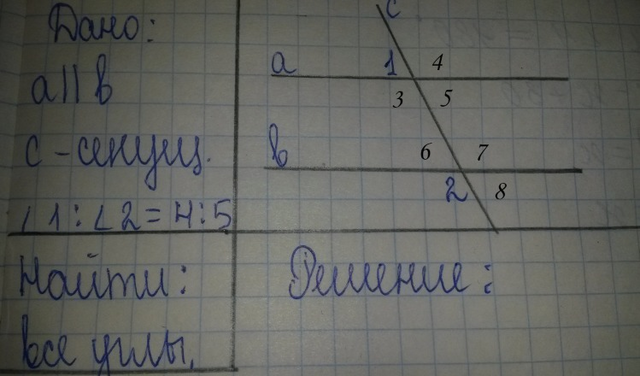 Дано:
a || в
с - секущ.
∠1 : ∠2 = 4 : 5
Найти:
все углы,
с
a
1
4
3
5
в
6
7
2
8
Решение: